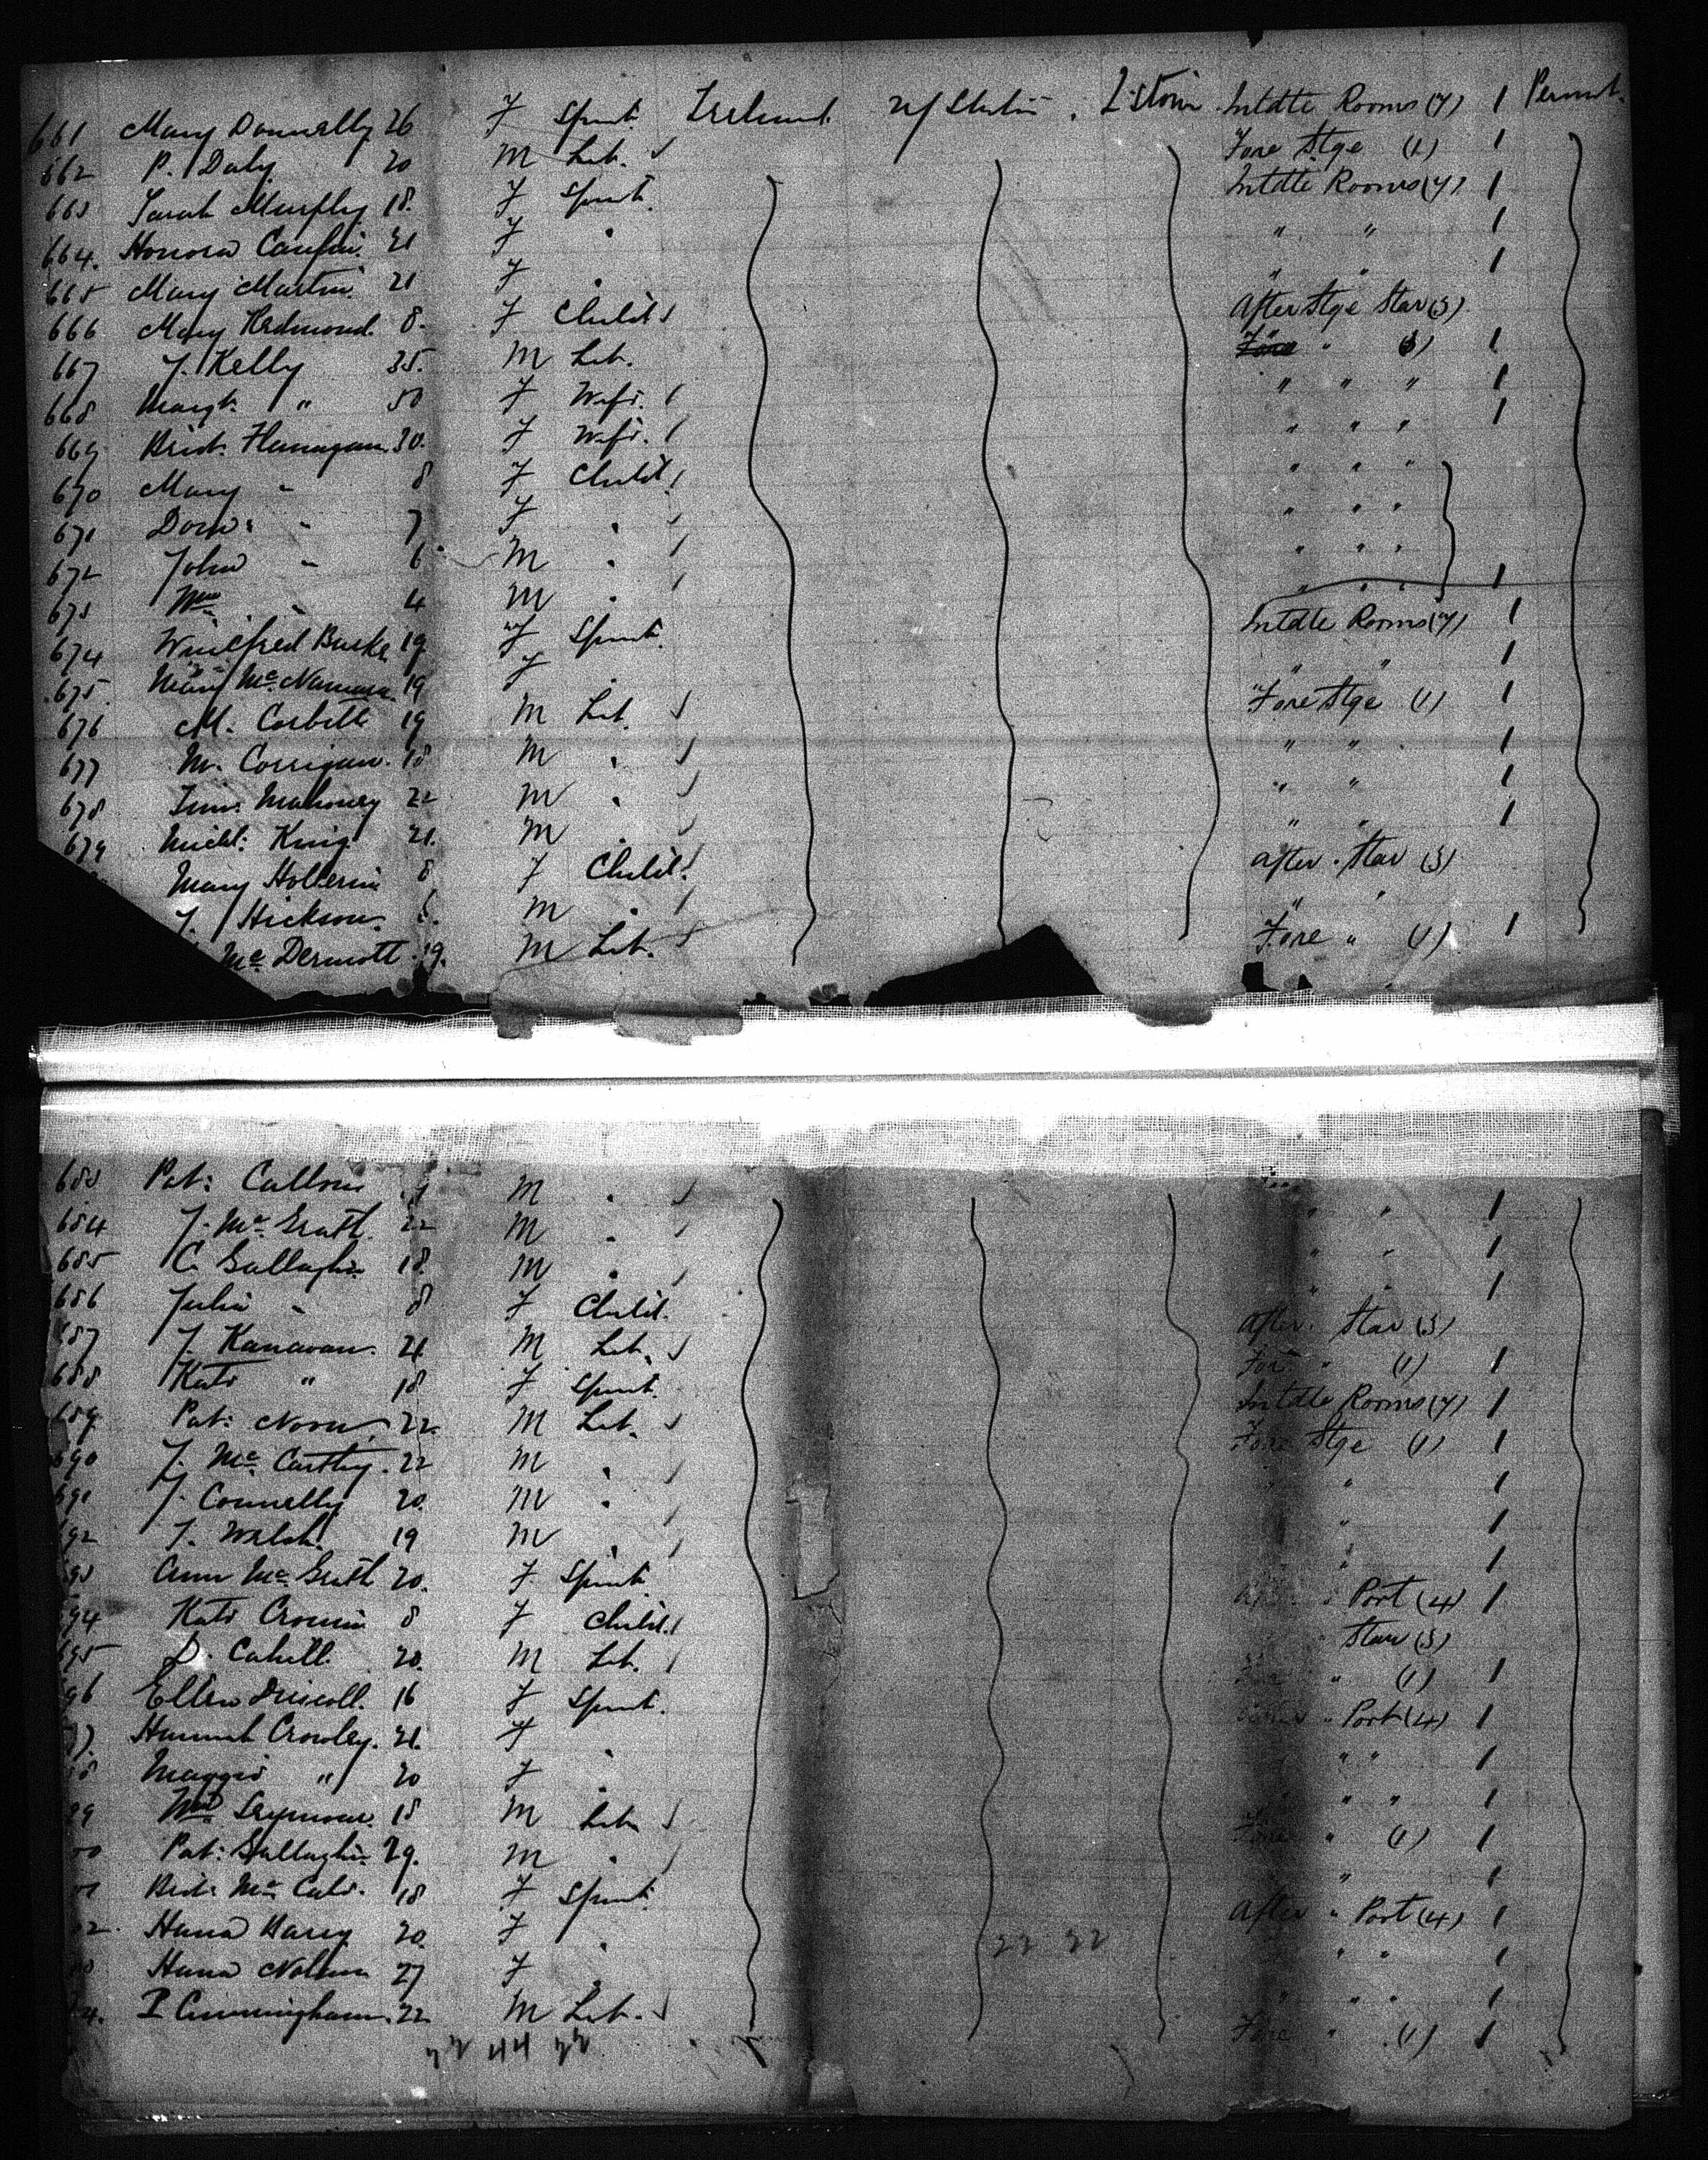 661 Mary Donnelly 26 F Spinst. Ireland U/States Intdte Rooms (Y) 1 Permt.
662 P. Daly 20 M Lab. Fore Stge (1) 1
663 Sarah Murphy 18. F Spinst. Intdte Rooms (Y) 1
664. Honora 21 F " " " 1
665 Mary Martin 21 F " " " 1
666 Mary Redmond. 8. F Child After Stge Star (3)
667 J. Kelly 35. M Lab. " (3) 1
668 Margt. " 50 F Wife. " " " 1
669 Brid. Flanagan. 30. F Wife. " " " 1
670 Mary " 8 F Child. " " "
671 " 7 F " " " "
672 John " 6 M " " " "
673 Wm " 4 M " " " " 1
674 Winifred Burke 19 F Spinst. Intdte Rooms (Y) 1
675. Mary McNamara 19 F " " " 1
676 M. Corbett 19 M Lab. Fore Stge (1) 1
677 M. Corrigan. 18 M " " " 1
678 Mahoney 22 M " " " 1
679 Michl: King 21. M " " " 1
Mary 8 F Child. After " Star (3)
J. Hickson. M " " "
McDermott 19. M Lab. Fore " (1) 1
683 Pat: M " " " 1
684 J. McGrath. 22 M " " " 1
685 C. Gallagher 18 M " " " 1
686 Julia " 8 F Child. After " Star (3)
687 J. Kanavan. 21 M Lab. Fore " (1) 1
688 Kate " 18 F Spinst. Intdte Rooms (Y) 1
689 Pat: 22. M Lab. Fore Stge (1) 1
690 J. McCarthy. 22 M " " " 1
691 J. Connelly 20. M " " 1
692 J. Welsh. 19 M " " 1
93 Ann McGrath 20. F Spinst. " Port (4) 1
94 Kate Cronin 8 F Child. " Star (3)
95 D. Cahill. 20. M Lab. " (1) 1
96 Ellen Driscoll. 16 F Spinst. " Port (4) 1
Hannah Crowley. 21. F " " " 1
Maggie " 20 F " " " 1
99 Wm Seymour. 18 M Lab. Fore " (1) 1
Pat: Gallagher 29. M " " 1
Brid. McCabe. 18 F Spinst. After " Port (4) 1
Hana 20. F " " " 1
Hana Nolan 27 F " " " 1
P Cunningham. 22 M Lab. Fore " (1) 1
22 22
22 44 22